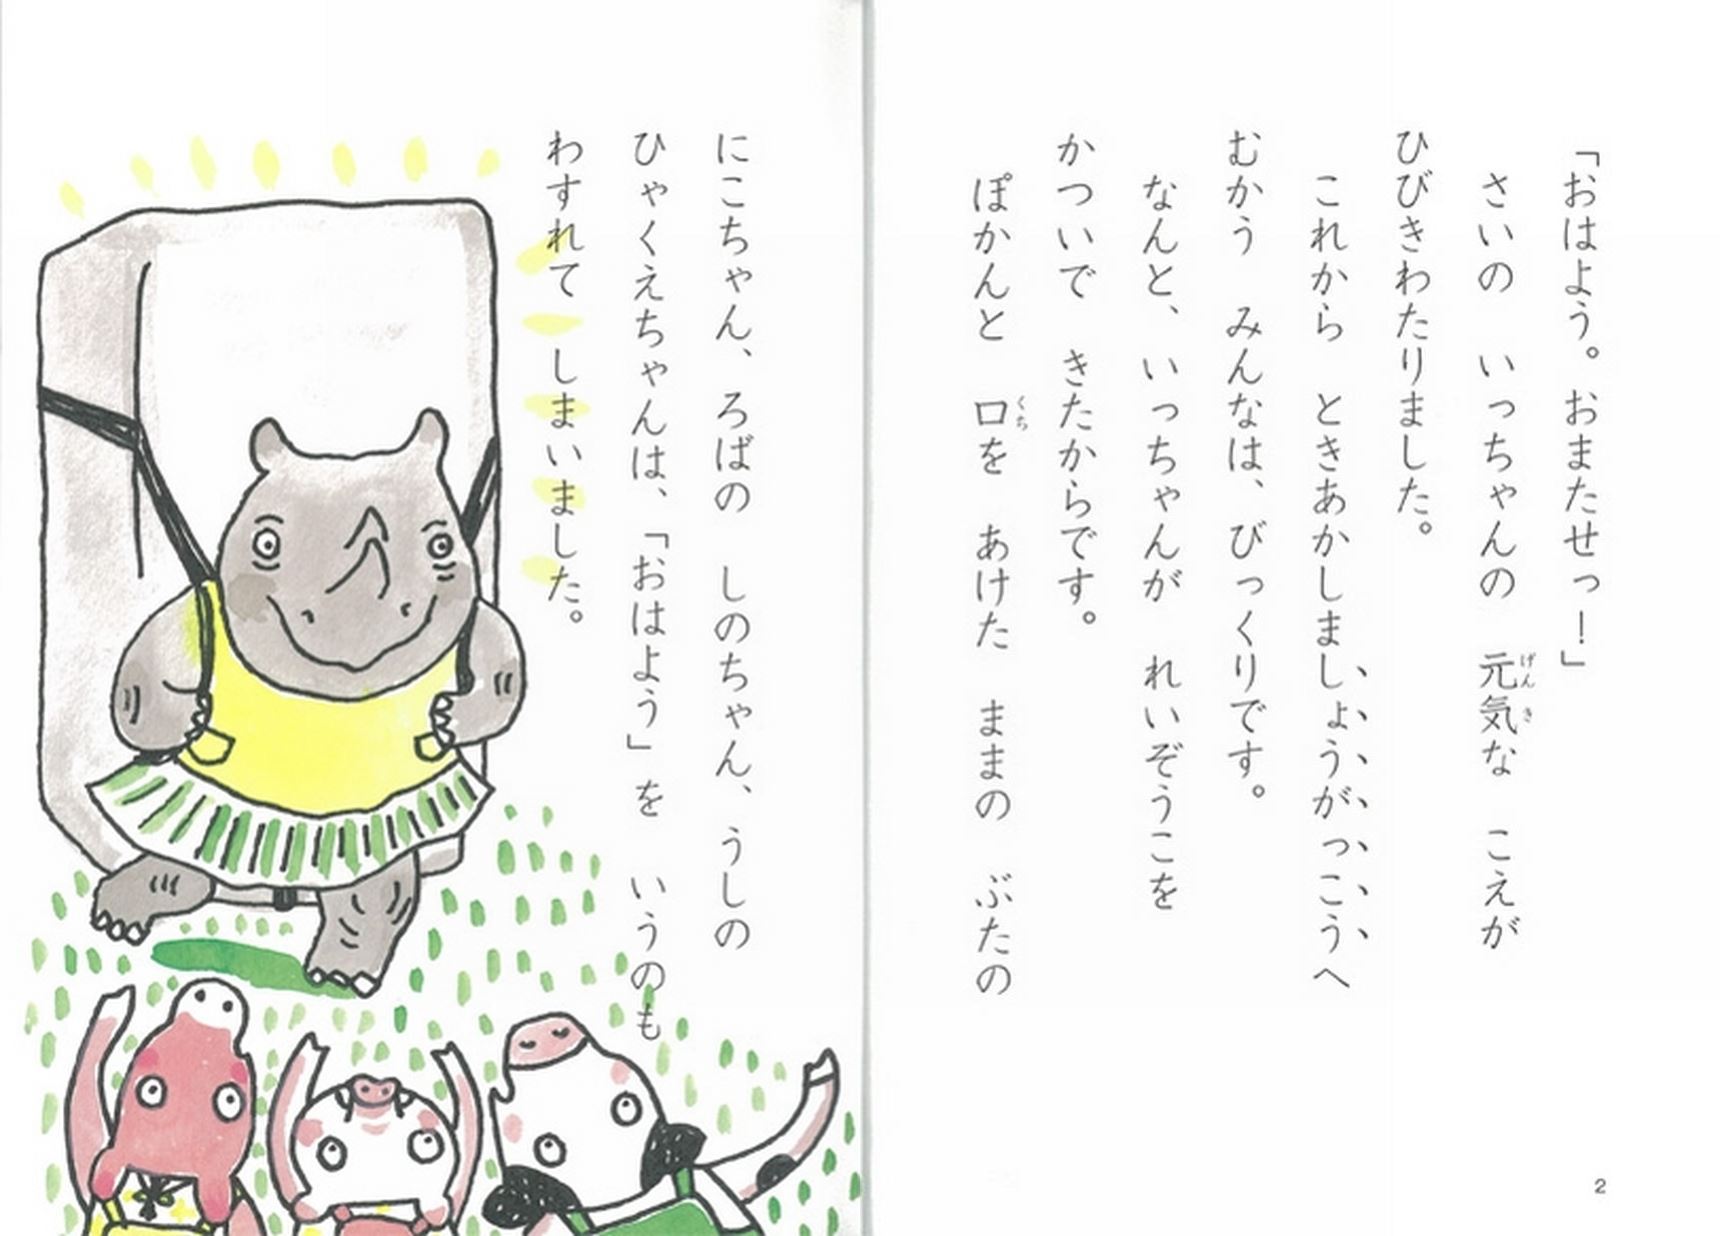 「おはよう。おまたせっ！」
　さいの　いっちゃんの　元気な　こえが
ひびきわたりました。
　これから　ときあかしましょうがっこうへ
むかう　みんなは、びっくりです。
　なんと、いっちゃんが　れいぞうこを
かついで　きたからです。
　ぽかんと　口を　あけた　ままの　ぶたの
にこちゃん、ろばの　しのちゃん、うしの
ひゃくえちゃんは、「おはよう」を　いうのも
わすれて　しまいました。
げんき
くち
2